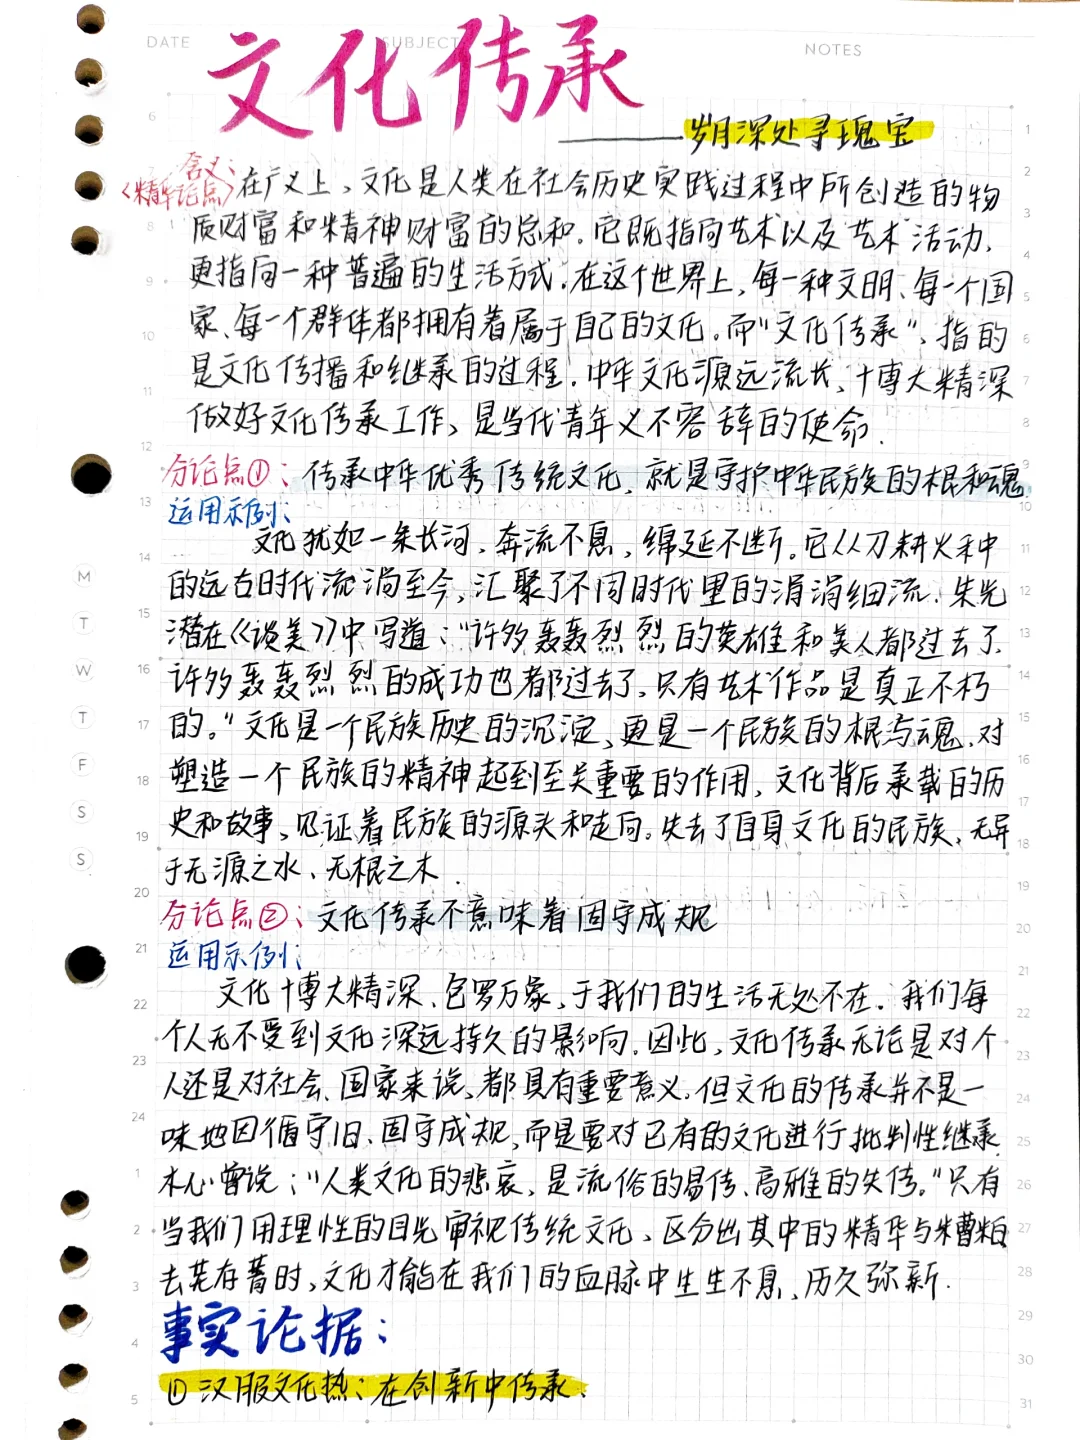 DATE
SUBJECT
NOTES
文化传承
——岁月深处寻瑰宝
含义:
〈精华论点〉在广义上、文化是人类在社会历史实践过程中所创造的物
质财富和精神财富的总和。它既指向艺术以及艺术活动,
更指向一种普遍的生活方式。在这个世界上,每一种文明、每一个国
家、每一个群体都拥有着属于自己的文化。而“文化传承”、指的
是文化传播和继承的过程。中华文化源远流长、博大精深
做好文化传承工作、是当代青年义不容辞的使命.
分论点①:传承中华优秀传统文化,就是守护中华民族的根和魂
运用示例:
文化犹如一条长河,奔流不息,绵延不断。它从刀耕火种
的远古时代流淌至今,汇聚了不同时代里的涓涓细流.朱光
潜在《谈美》中写道:“许多轰轰烈烈的英雄和美人都过去了、
许多轰轰烈烈的成功也都过去了,只有艺术作品是真正不朽
的。”文化是一个民族历史的沉淀,更是一个民族的根与魂,对
塑造一个民族的精神起到至关重要的作用,文化背后承载的历
史和故事,见证着民族的源头和走向。失去了自身文化的民族、无异
于无源之水、无根之木.
分论点②:文化传承不意味着固守成规
运用示例:
文化博大精深、包罗万象,于我们的生活无处不在.我们每
个人无不受到文化深远持久的影响.因此,文化传承无论是对个
人还是对社会、国家来说,都具有重要意义.但文化的传承并不是一
味地因循守旧、固守成规,而是要对已有的文化进行批判性继承.
木心曾说:“人类文化的悲哀,是流俗的易传、高雅的失传。”只有
当我们用理性的目光审视传统文化、区分出其中的精华与糟粕
去芜存菁时,文化才能在我们的血脉中生生不息、历久弥新.
事实论据:
①汉服文化热:在创新中传承.
6
8
9
10
11
12
13
14
15
16
17
18
19
20
21
22
23
24
1
2
3
4
5
M
T
W
T
F
S
S
1
2
3
4
5
6
7
8
9
10
11
12
13
14
15
16
17
18
19
20
21
22
23
24
25
26
27
28
29
30
31